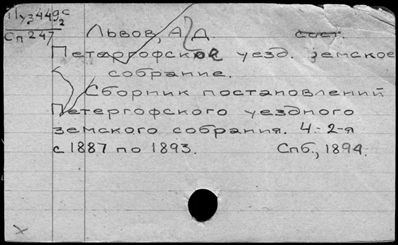 Пуз449с
Сп 247
Львов, А. Д. сост.
Петергофское уезд. земское
собрание.
Сборник постановлений
Петергофского уездного
земского собрания. Ч. 2-я
с 1887 по 1893. Спб., 1894.